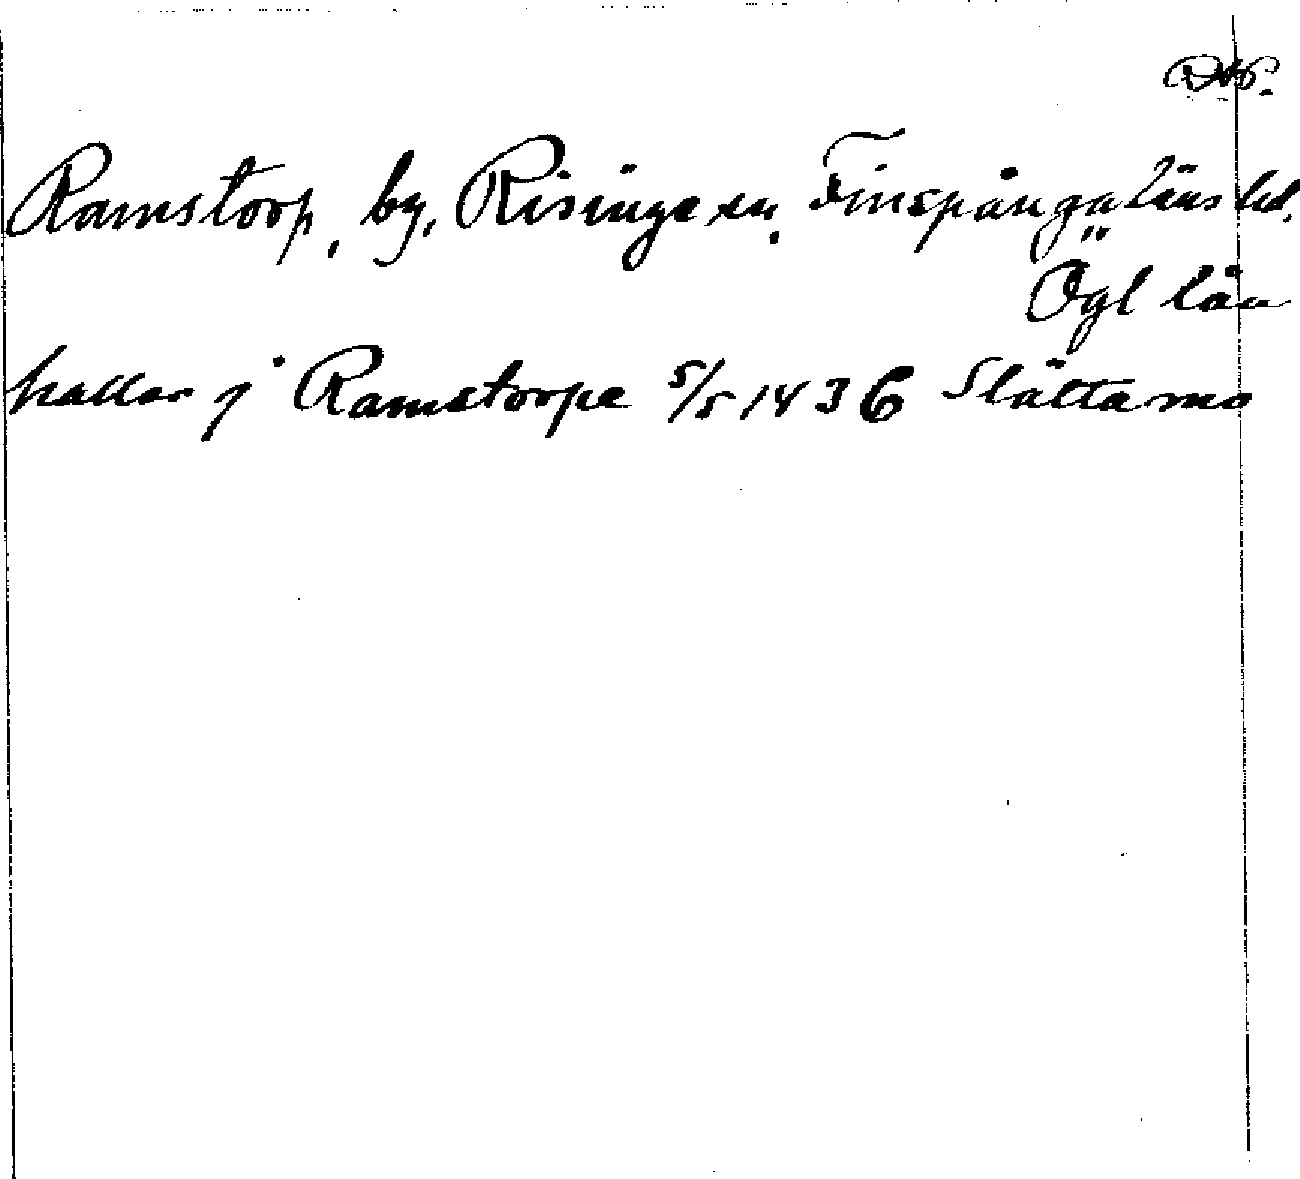 Ramstorp, by, Risinge sn. Finspånga läns hd.
Ögl län
hallar j Ramstorpe 5/5 1436 Slättamo